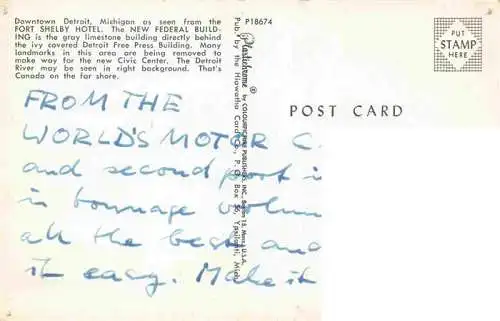 Downtown Detroit, Michigan as seen from the
FORT SHELBY HOTEL. The NEW FEDERAL BUILD-
ING is the gray limestone building directly behind
the ivy covered Detroit Free Press Building. Many
landmarks in this area are being removed to
make way for the new Civic Center. The Detroit
River may be seen in right background. That's
Canada on the far shore.
P18674
Plastichrome ®
by COLOURPICTURE PUBLISHERS, INC., Boston 15, Mass., U.S.A.
Pub. by the Hiawatha Card Co., P. O. Box 56, Ypsilanti, Mich.
PUT
STAMP
HERE
POST CARD
FROM THE
WORLD'S MOTOR C.
and second port i
in tonnage volum
all the best and
it easy. Make it